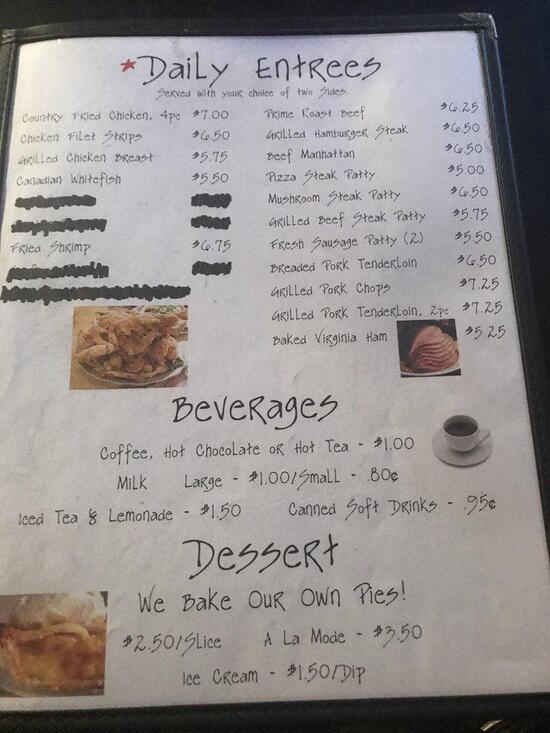 Daily Entrees
Served with your choice of two sides
Country Fried Chicken, 4pc $7.00
Chicken Filet Strips $6.50
Grilled Chicken Breast $5.75
Canadian Whitefish $5.50
Fried Shrimp $6.75
Prime Roast Beef $6.25
Grilled Hamburger Steak $6.50
Beef Manhattan $6.50
Pizza Steak Patty $5.00
Mushroom Steak Patty $6.50
Grilled Beef Steak Patty $5.75
Fresh Sausage Patty (2) $5.50
Breaded Pork Tenderloin $6.50
Grilled Pork Chops $7.25
Grilled Pork Tenderloin, 2pc $7.25
Baked Virginia Ham $5.25
Beverages
Coffee, Hot Chocolate or Hot Tea - $1.00
Milk Large - $1.00/Small - .80¢
Iced Tea & Lemonade - $1.50 Canned Soft Drinks - .95¢
Dessert
We Bake Our Own Pies!
$2.50/Slice A La Mode - $3.50
Ice Cream - $1.50/Dip